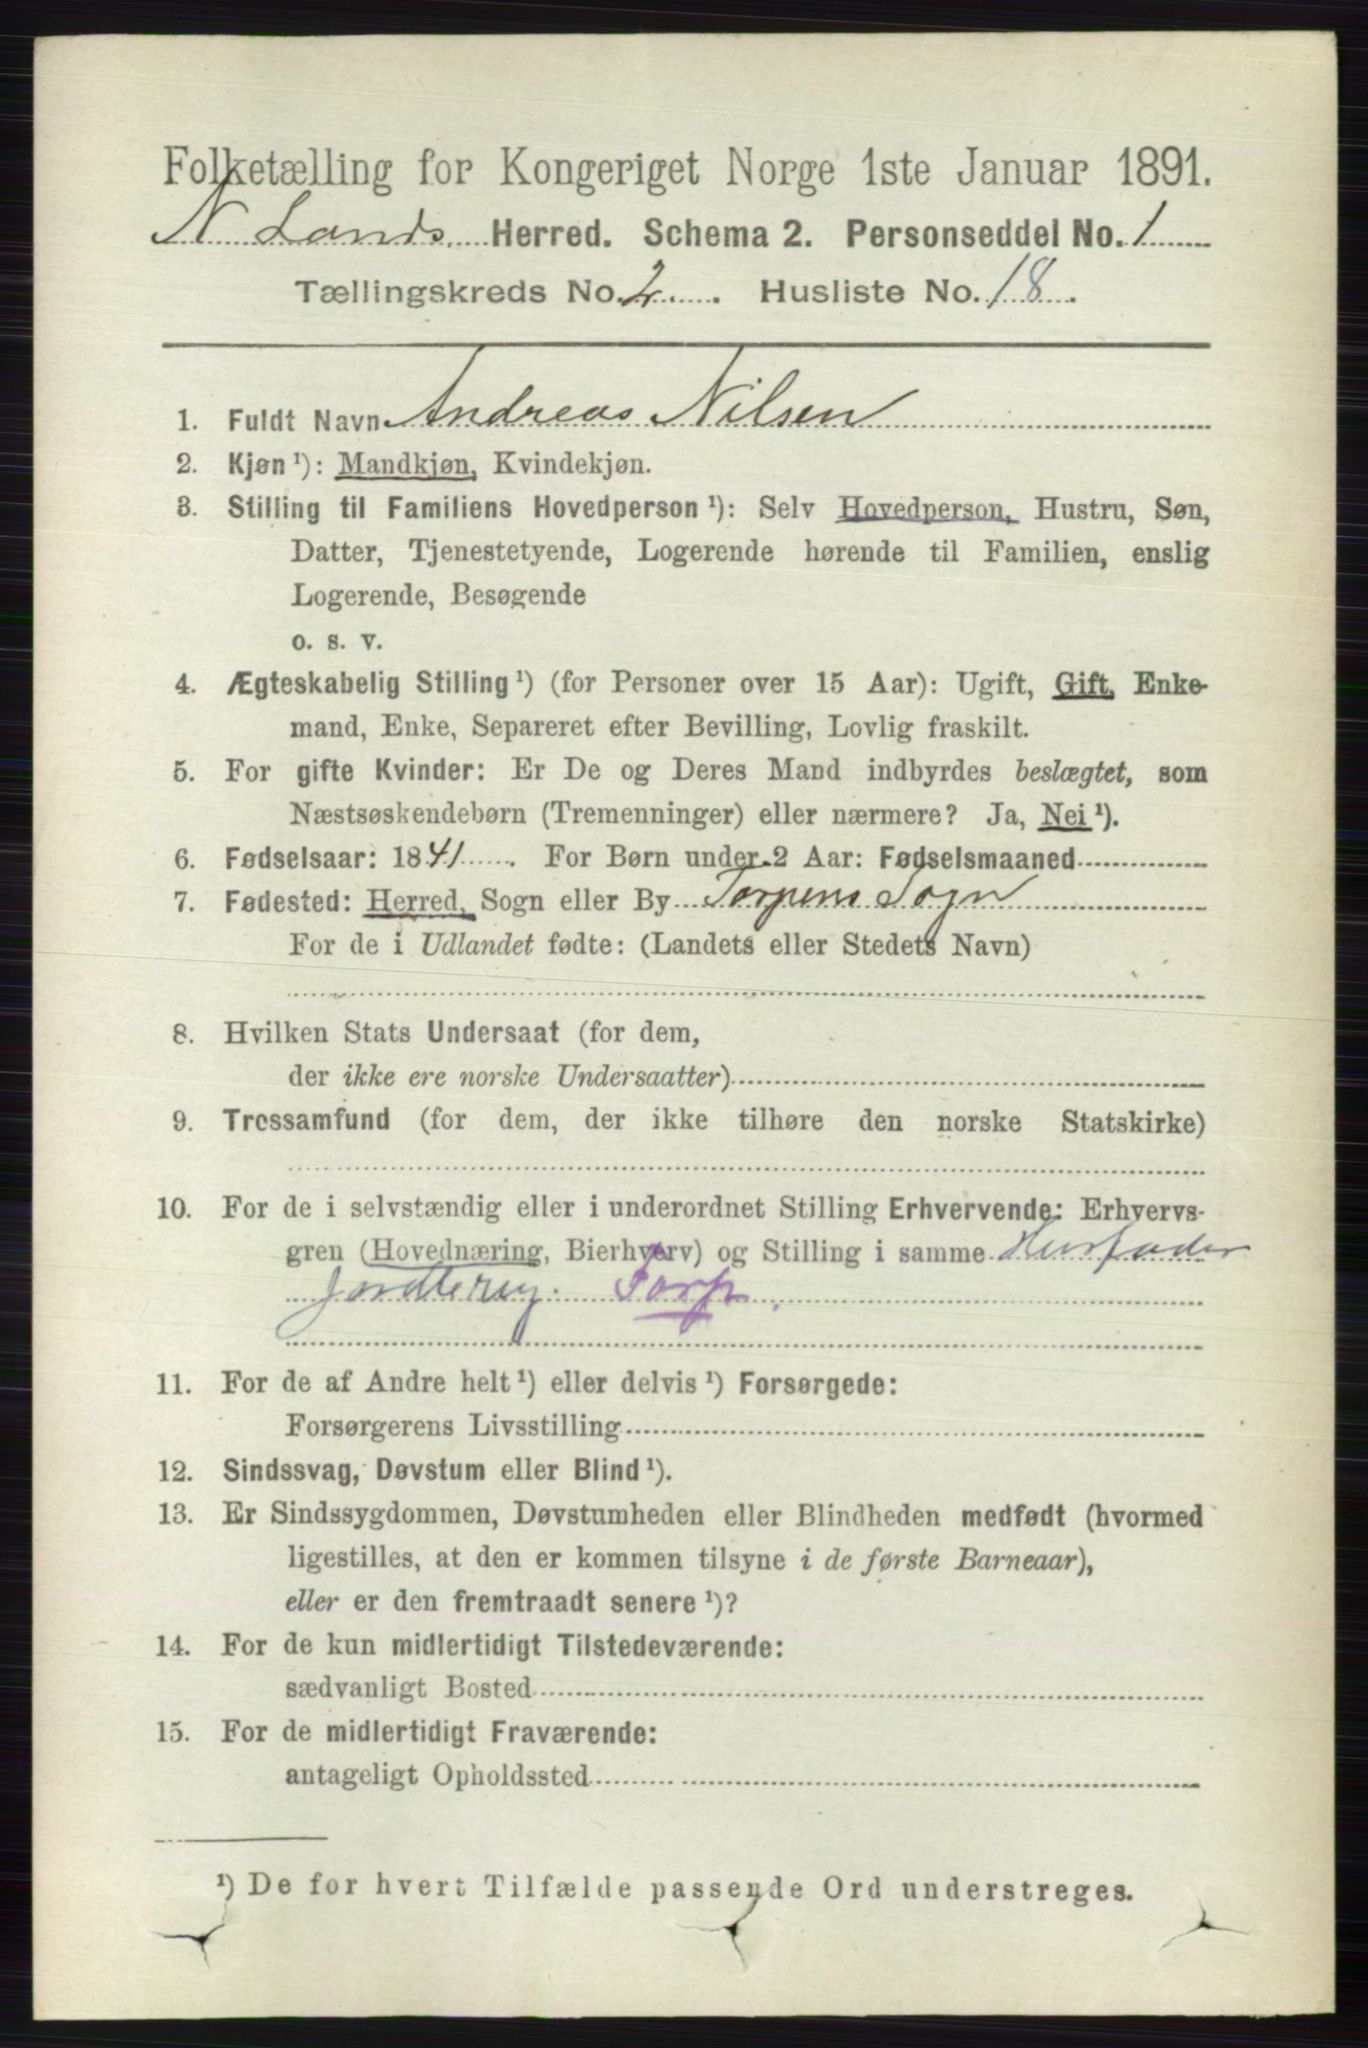 Folketælling for Kongeriget Norge 1ste Januar 1891.
N. Lands Herred. Schema 2. Personseddel No. 1
Tællingskreds No. 2. Husliste No. 18.
1. Fuldt Navn Andreas Nilsen
2. Kjøn ¹): Mandkjøn, Kvindekjøn.
3. Stilling til Familiens Hovedperson ¹): Selv Hovedperson, Hustru, Søn,
Datter, Tjenestetyende, Logerende hørende til Familien, enslig
Logerende, Besøgende
o. s. v.
4. Ægteskabelig Stilling ¹) (for Personer over 15 Aar): Ugift, Gift, Enke-
mand, Enke, Separeret efter Bevilling, Lovlig fraskilt.
5. For gifte Kvinder: Er De og Deres Mand indbyrdes beslægtet, som
Næstsøskendebørn (Tremenninger) eller nærmere? Ja, Nei ¹).
6. Fødselsaar: 1841. For Børn under 2 Aar: Fødselsmaaned
7. Fødested: Herred, Sogn eller By Torpens Sogn
For de i Udlandet fødte: (Landets eller Stedets Navn)
8. Hvilken Stats Undersaat (for dem,
der ikke ere norske Undersaatter)
9. Trossamfund (for dem, der ikke tilhøre den norske Statskirke)
10. For de i selvstændig eller i underordnet Stilling Erhvervende: Erhvervs-
gren (Hovednæring, Bierhverv) og Stilling i samme Husfader
Torp.
11. For de af Andre helt ¹) eller delvis ¹) Forsørgede:
Forsørgerens Livsstilling
12. Sindssvag, Døvstum eller Blind ¹).
13. Er Sindssygdommen, Døvstumheden eller Blindheden medfødt (hvormed
ligestilles, at den er kommen tilsyne i de første Barneaar),
eller er den fremtraadt senere ¹)?
14. For de kun midlertidigt Tilstedeværende:
sædvanligt Bosted
15. For de midlertidigt Fraværende:
antageligt Opholdssted
¹) De for hvert Tilfælde passende Ord understreges.